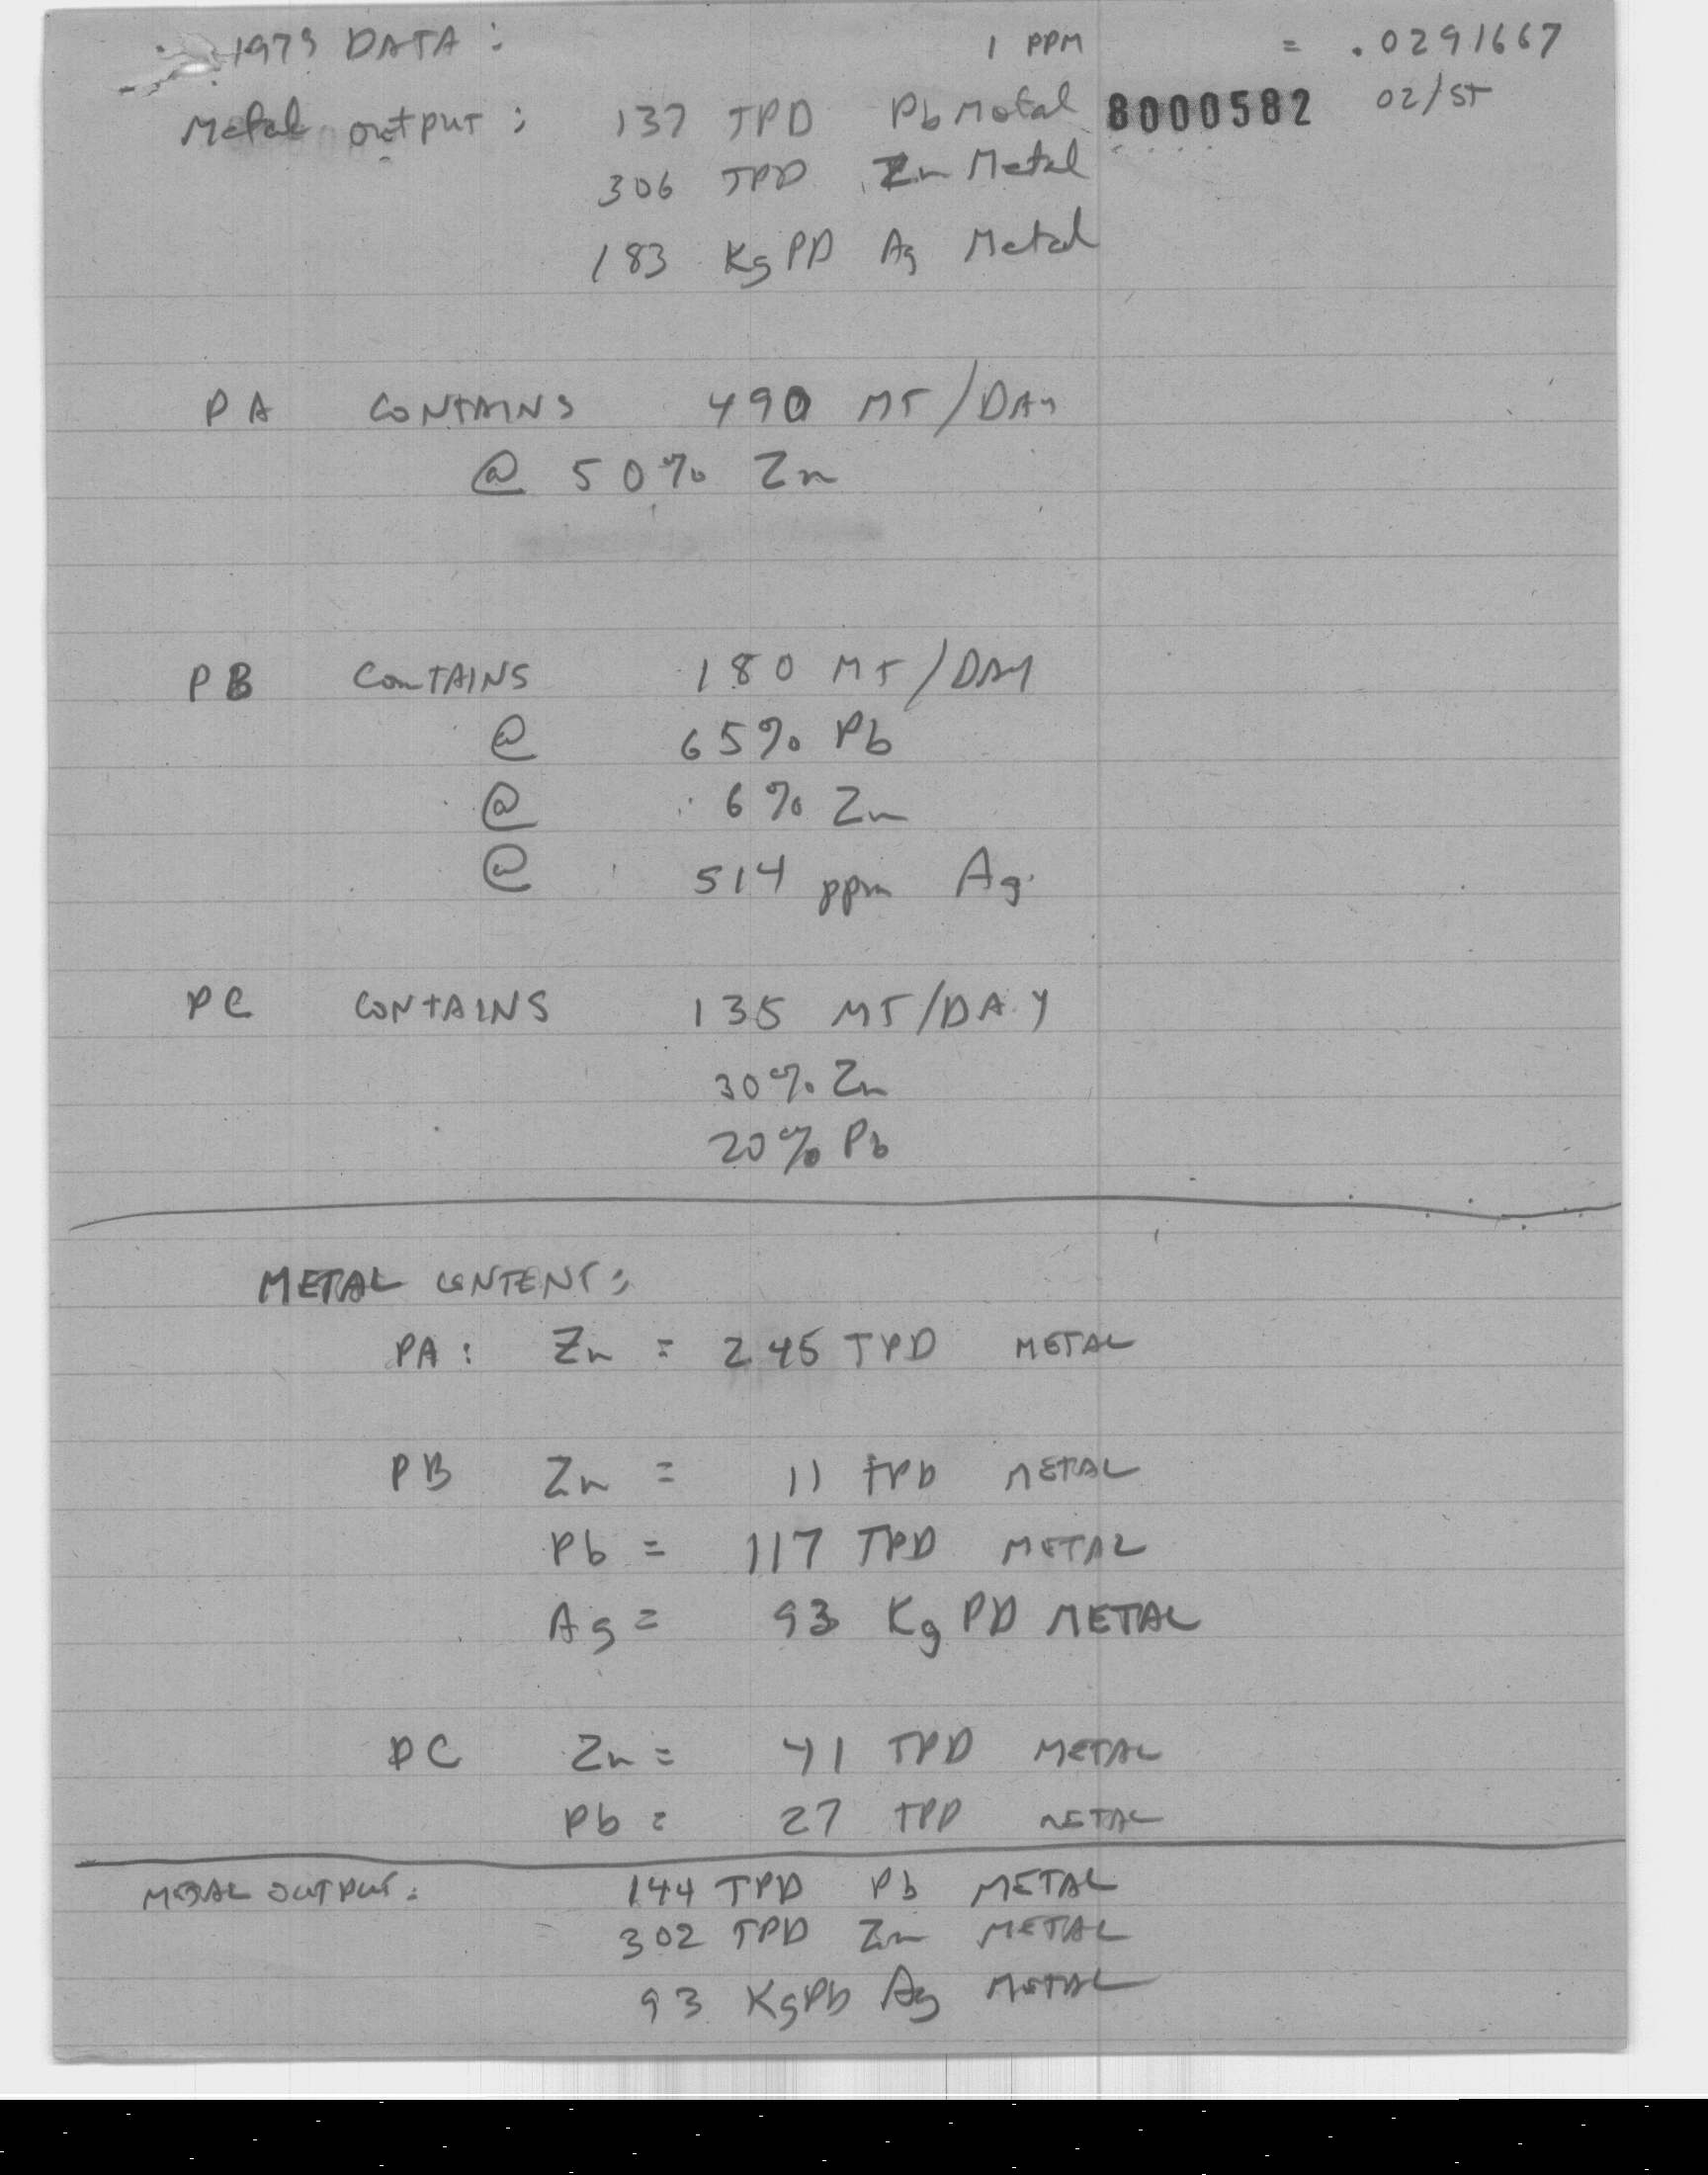 1979 DATA : 1 PPM = .0291667
Metal output : 137 TPD Pb Metal 8000582 OZ/ST
306 TPD Zn Metal
183 Kg PD Ag Metal
PA CONTAINS 490 MT/DAY
@ 50% Zn
PB CONTAINS 180 MT/DAY
@ 65% Pb
@ 6% Zn
@ 514 ppm Ag
PC CONTAINS 135 MT/DAY
30% Zn
20% Pb
METAL CONTENT :
PA : Zn = 245 TPD METAL
PB Zn = 11 TPD METAL
Pb = 117 TPD METAL
Ag = 93 Kg PD METAL
PC Zn = 41 TPD METAL
Pb = 27 TPD METAL
METAL OUTPUT : 144 TPD Pb METAL
302 TPD Zn METAL
93 KgPD Ag METAL